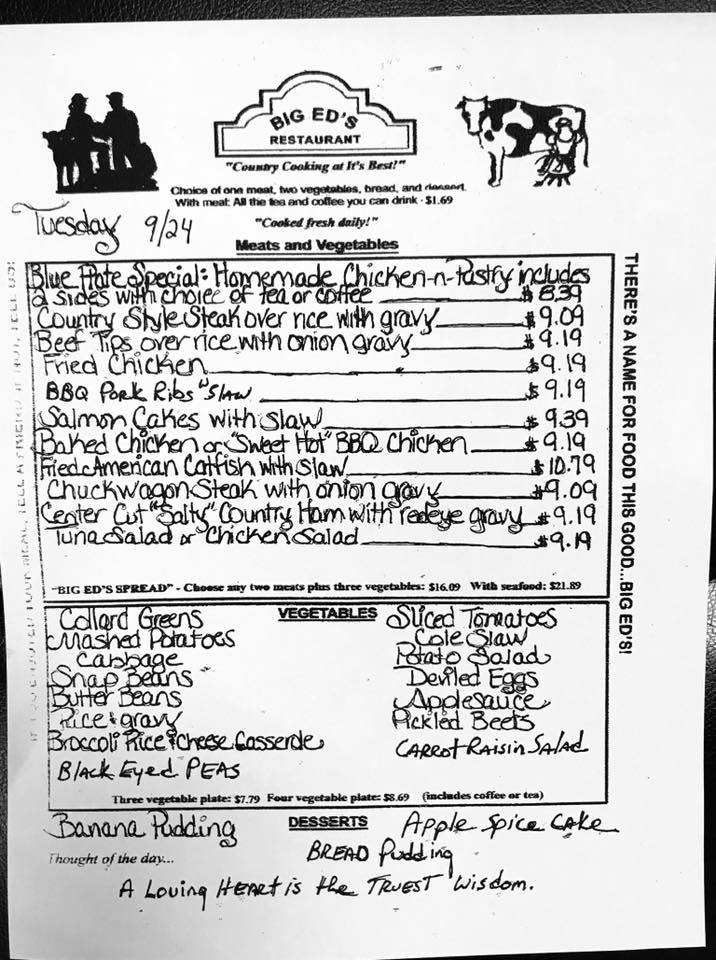 BIG ED'S
RESTAURANT
"Country Cooking at It's Best!"
Choice of one meat, two vegetables, bread, and dessert.
With meat: All the tea and coffee you can drink - $1.69
Tuesday 9/24
"Cooked fresh daily!"
Meats and Vegetables
Blue Plate Special: Homemade Chicken-n-Pastry includes
2 sides with choice of tea or coffee $8.39
Country Style Steak over rice with gravy $9.09
Beef Tips over rice with onion gravy $9.19
Fried Chicken $9.19
BBQ Pork Ribs w/ Slaw $9.19
Salmon Cakes with slaw $9.39
Baked Chicken or "Sweet Hot" BBQ Chicken $9.19
Fried American Catfish with Slaw $10.79
Chuckwagon Steak with onion gravy $9.09
Center Cut "Salty" Country Ham with redeye gravy $9.19
Tuna Salad or Chicken Salad $9.19
"BIG ED'S SPREAD" - Choose any two meats plus three vegetables: $16.09 With seafood: $21.89
THERE'S A NAME FOR FOOD THIS GOOD...BIG ED'S!
VEGETABLES
Collard Greens
Mashed Potatoes
Cabbage
Snap Beans
Butter Beans
Rice & gravy
Broccoli Rice & Cheese Casserole
Black Eyed PEAS
Sliced Tomatoes
Cole Slaw
Potato Salad
Deviled Eggs
Applesauce
Pickled Beets
CARROT RAISIN SALAD
Three vegetable plate: $7.79 Four vegetable plate: $8.69 (includes coffee or tea)
DESSERTS
Banana Pudding
Apple Spice CAKE
BREAD Pudding
Thought of the day...
A Loving HEART is the TRUEST Wisdom.